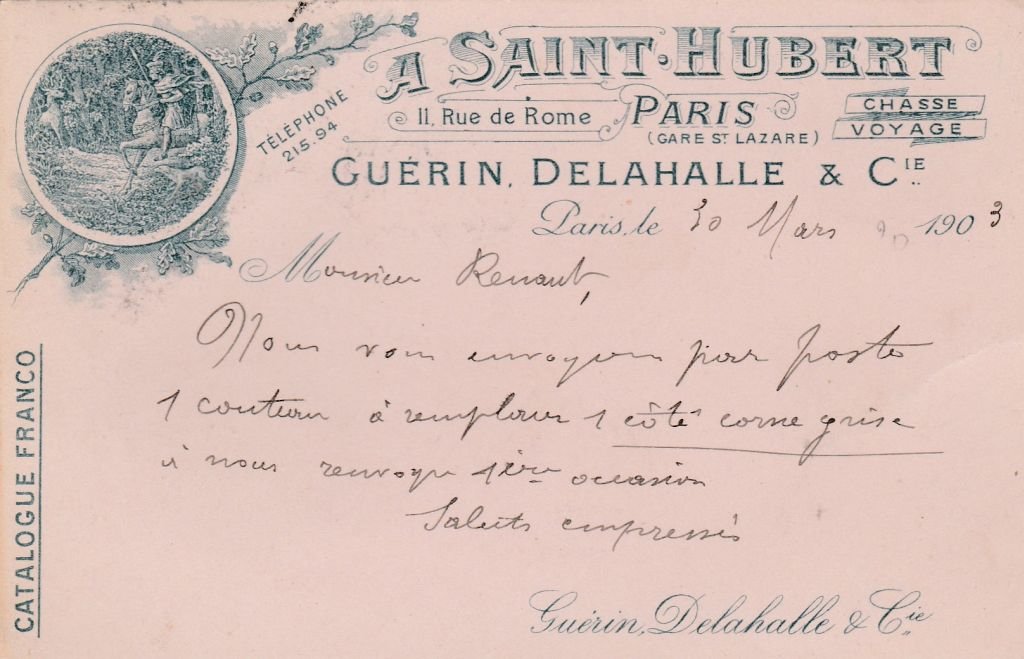 A SAINT-HUBERT
11, Rue de Rome PARIS
(GARE ST LAZARE)
CHASSE
VOYAGE
TÉLÉPHONE
215.94
GUÉRIN, DELAHALLE & CIE
Paris, le 30 Mars 1903
Monsieur Renault,
Nous vous envoyons par poste
1 couteau à remplacer 1 côté corne grise
à nous renvoyer 1ère occasion
Saluts empressés
Guérin, Delahalle & Cie
CATALOGUE FRANCO